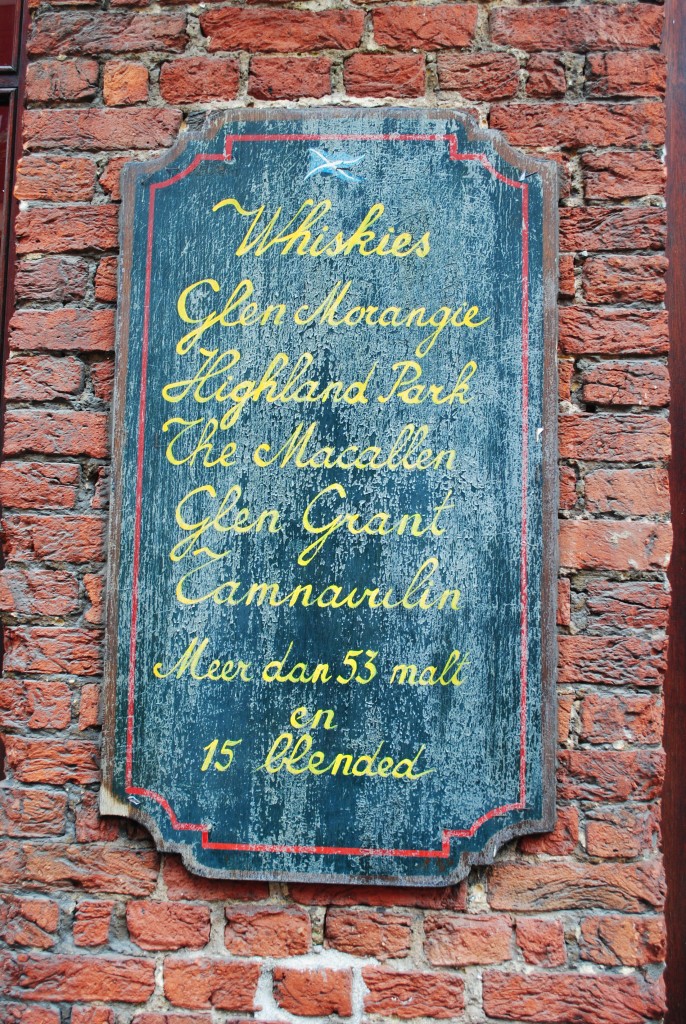 Whiskies
Glen Morangie
Highland Park
The Macallen
Glen Grant
Tamnavulin
Meer dan 53 malt
en
15 blended